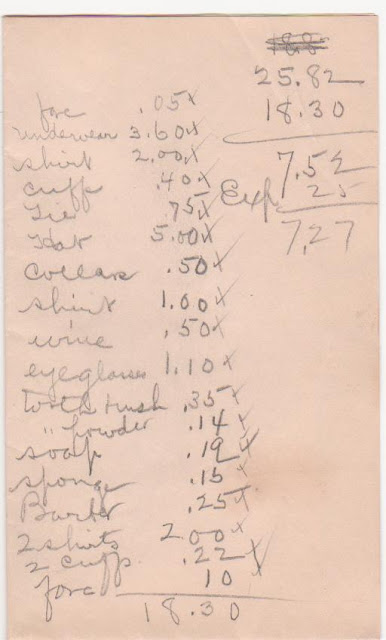 25.82
18.30
7.52
Exp 25
7,27
fare .05 x
underwear 3.60 x
shirt 2.00 x
cuffs .40 x
Tie .75 x
Hat 5.00 x
Collars .50 x
shirt 1.00 x
wine .50 x
eyeglasses 1.10 x
tooth brush .35 x
" powder .14 x
soap .19 x
sponge .15 x
Barber .25 x
2 shirts 2 00 x
2 cuffs .22 x
fare 10 x
18.30